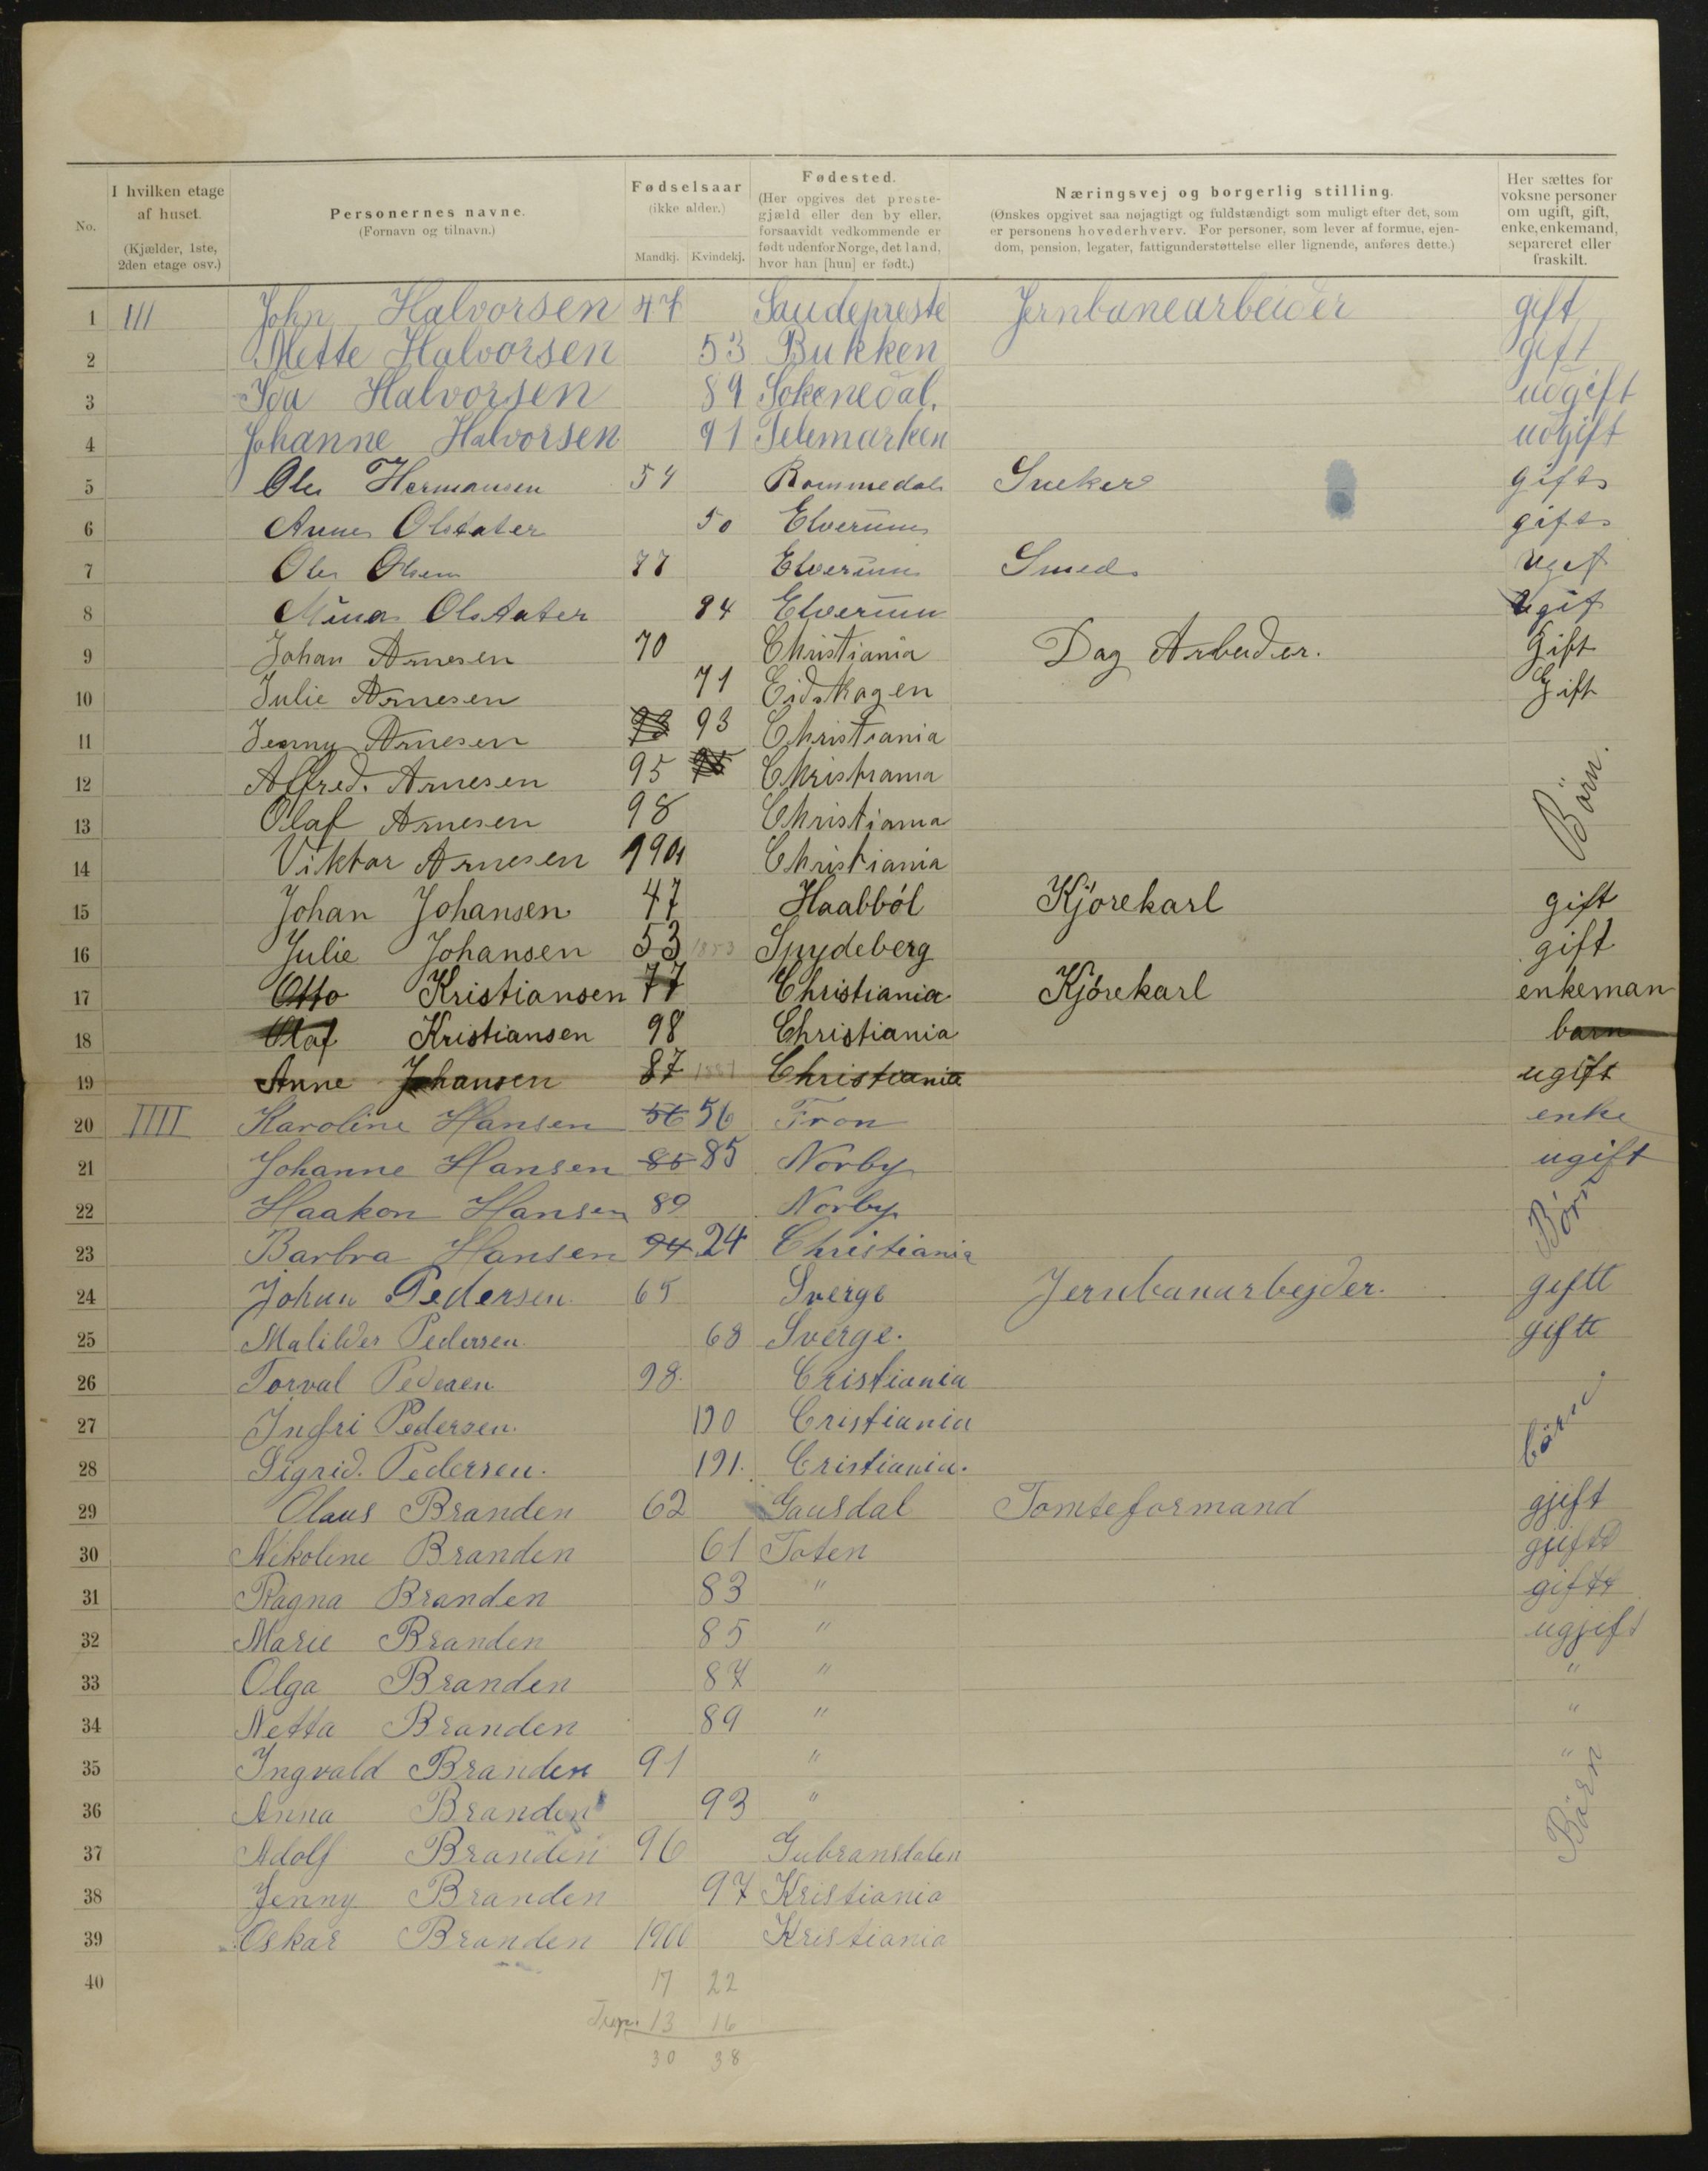 No.
I hvilken etage af huset.
(Kjælder, 1ste, 2den etage osv.)
Personernes navne.
(Fornavn og tilnavn.)
Fødselsaar
(ikke alder.)
Mandkj. Kvindekj.
Fødested.
(Her opgives det prestegjæld eller den by eller, forsaavidt vedkommende er født udenfor Norge, det land, hvor han [hun] er født.)
Næringsvej og borgerlig stilling.
(Ønskes opgivet saa nøjagtigt og fuldstændigt som muligt efter det, som er personens hovederhverv. For personer, som lever af formue, ejendom, pension, legater, fattigunderstøttelse eller lignende, anføres dette.)
Her sættes for voksne personer om ugift, gift, enke, enkemand, separeret eller fraskilt.
1 III John Halvorsen 47 Saudepreste Jernbanearbeider gift
2 Mette Halvorsen 53 Bukken gift
3 Ida Halvorsen 89 Sokenedal. udgift
4 Johanne Halvorsen 91 Telemarken udgift
5 Ole Hermansen 54 Rommedal Sneker gift
6 Anne Olstater 50 Elverum gift
7 Ole Olsen 77 Elverum Smed ugif
8 Mina Olstater 84 Elverum Ugif
9 Johan Arnesen 70 Christiania Dag Arbeider. Gift
10 Julie Arnesen 71 Eidskagen Gift
11 Jenny Arnesen 93 93 Christiania
12 Alfred. Arnesen 95 95 Christiania
13 Olaf Arnesen 98 Christiania
14 Viktor Arnesen 1901 Christiania
Börn.
15 Johan Johansen 47 Haabböl Kjörekarl gift
16 Julie Johansen 53 1853 Spydeberg gift
17 Otto Kristiansen 77 Christiania Kjörekarl enkeman
18 Olaf Kristiansen 98 Christiania barn
19 Anne Johansen 87 1887 Christiania ugift
20 IIII Karoline Hansen 56 56 Fron enke
21 Johanne Hansen 85 85 Norby ugift
22 Haakon Hansen 89 Norby
23 Barbra Hansen 94 24 Christiania
Börn
24 Johan Pedersen. 65 Sverge Jernbanarbejder. giftt
25 Matilder Pedersen. 68 Sverge. giftt
26 Torval Pedersen 98. Cristiania
27 Ingri Pedersen. 190 Cristiania
28 Sigrid. Pedersen. 191. Cristiania.
börn
29 Olaus Branden 62 Gausdal Tomteformand gjift
30 Nikoline Branden 61 Toten gjift
31 Ragna Branden 83 " gift
32 Marie Branden 85 " ugjift
33 Olga Branden 87 " "
34 Netta Branden 89 " "
35 Ingvald Branden 91 " "
36 Anna Branden 93 "
37 Adolf Branden 96 Gubransdalen
38 Jenny Branden 97 Kristiania
39 Oskar Branden 1900 Kristiania
Börn
40
17 22
13 16
30 38